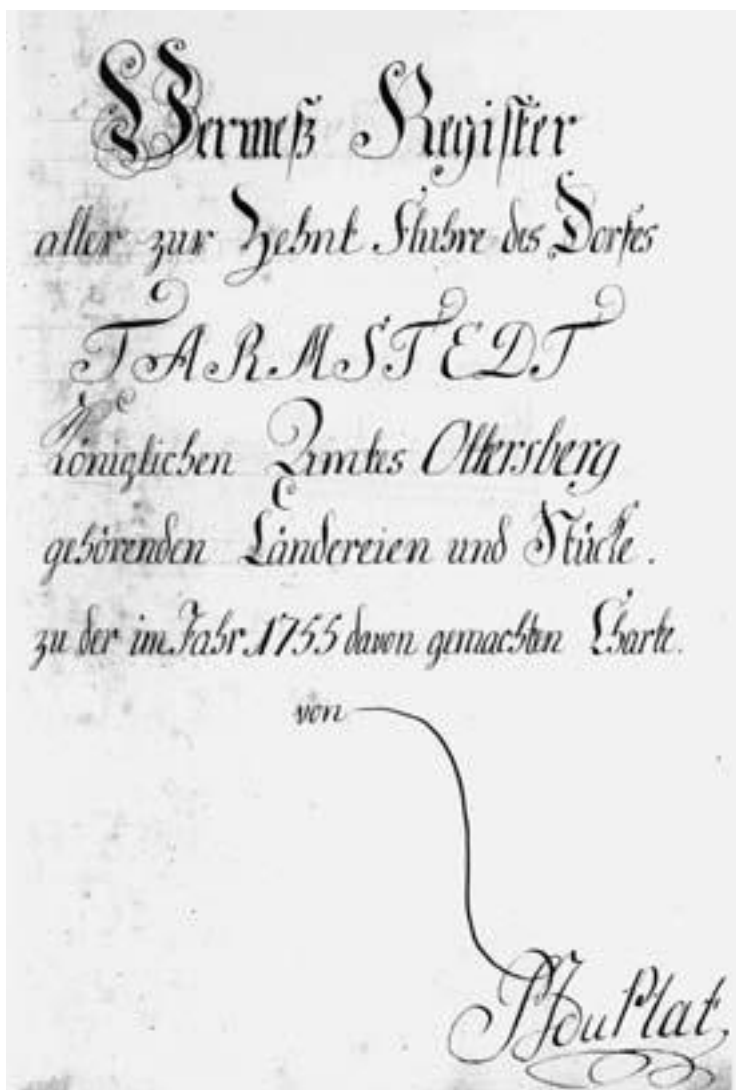 Vermeß Register
aller zur Zehnt Fluhre des Dorfes
TARMSTEDT
Königlichen Amtes Ottersberg
gehörenden Ländereien und Stücke.
zu der im Jahr 1755 davon gemachten Charte.
von
du Plat